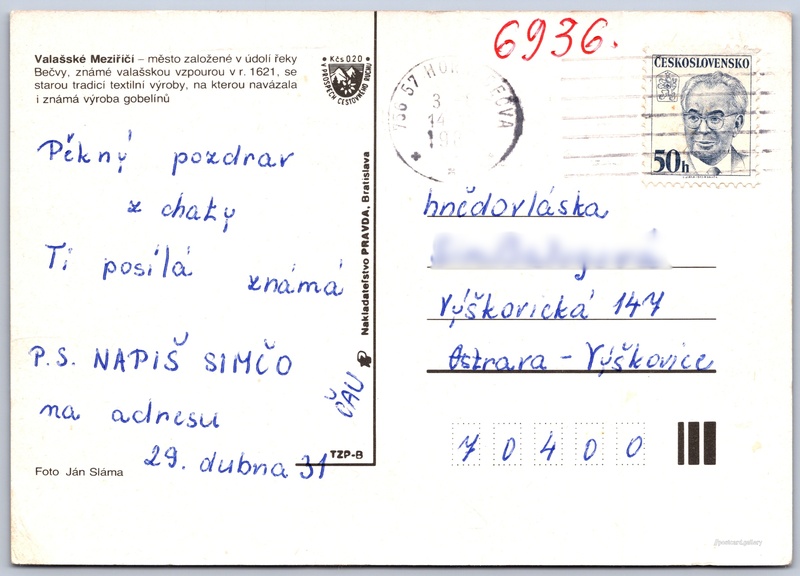 Valašské Meziříčí – město založené v údolí řeky
Bečvy, známé valašskou vzpourou v r. 1621, se
starou tradicí textilní výroby, na kterou navázala
i známá výroba gobelínů
Kčs 020
V PROSPĚCH CESTOVNÉHO RUCHU
Pěkný pozdrav
z chaty
Ti posílá známá
P.S. NAPIŠ SIMČO
na adresu
29. dubna 31
ČAU
Foto Ján Sláma
TZP-B
Nakladateľstvo PRAVDA, Bratislava
6936.
756 57 HOR BEČVA
3
14
198
ČESKOSLOVENSKO
50h
hnědovláska
Výškovická 147
Ostrava - Výškovice
70400
//postcard.gallery